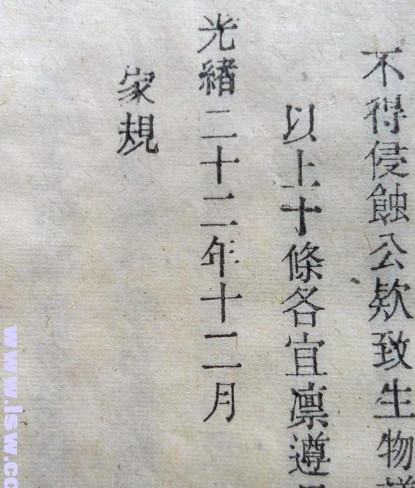 不得侵蝕公欵致生物
以上十條各宜凛遵
光緒二十二年十二月
家規
www.lsw.c